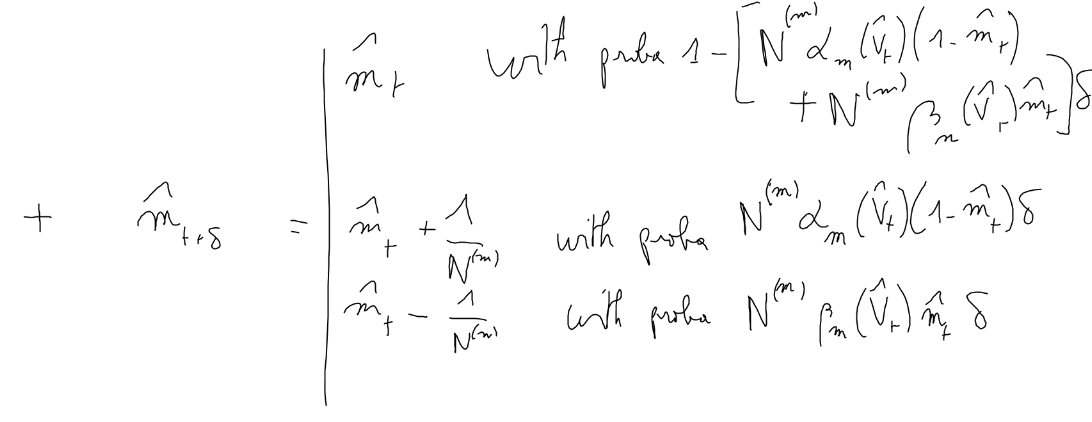 m̂_t with proba 1 - [N^(m) α_m(V̂_t)(1 - m̂_t)
+ N^(m) β_m(V̂_t) m̂_t] δ
+ m̂_{t+δ} = | m̂_t + 1/N^(m) with proba N^(m) α_m(V̂_t)(1 - m̂_t) δ
m̂_t - 1/N^(m) with proba N^(m) β_m(V̂_t) m̂_t δ